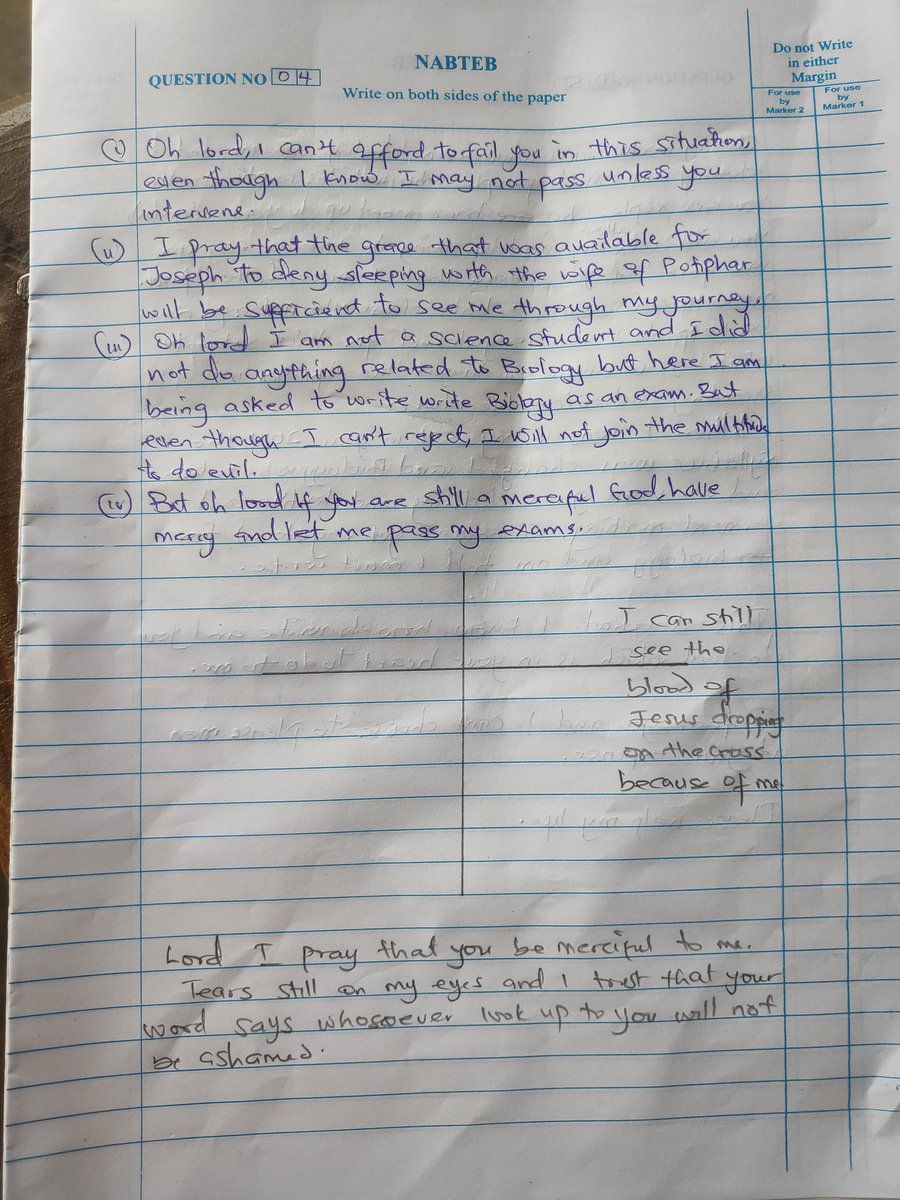 NABTEB
Do not Write
in either
Margin
QUESTION NO 04
Write on both sides of the paper
For use
by
Marker 2
For use
by
Marker 1
(i) Oh lord, I can't afford to fail you in this situation,
even though I know I may not pass unless you
intervene.
(ii) I pray that the grace that was available for
Joseph to deny sleeping with the wife of Potiphar
will be sufficient to see me through my journey.
(iii) Oh lord I am not a science student and I did
not do anything related to Biology but here I am
being asked to write write Biology as an exam. But
even though I can't reject, I will not join the multitude
to do evil.
(iv) But oh lord if you are still a merciful God, have
mercy and let me pass my exams.
I can still
see the
blood of
Jesus dropping
on the cross
because of me
Lord I pray that you be merciful to me.
Tears still on my eyes and I trust that your
word says whosoever look up to you will not
be ashamed.